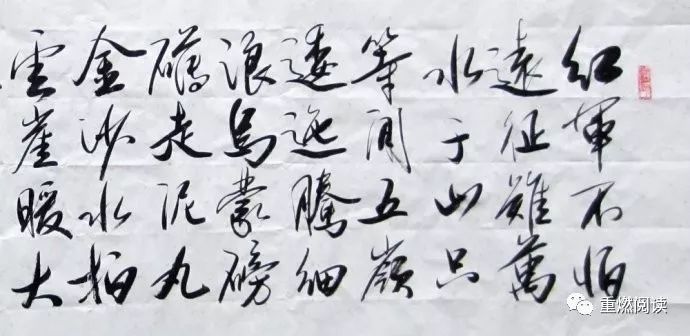 红軍不怕
遠征難萬
水千山只
等闲五嶺
逶迤騰细
浪烏蒙磅
礴走泥丸
金沙水拍
雲崖暖大
重燃阅读